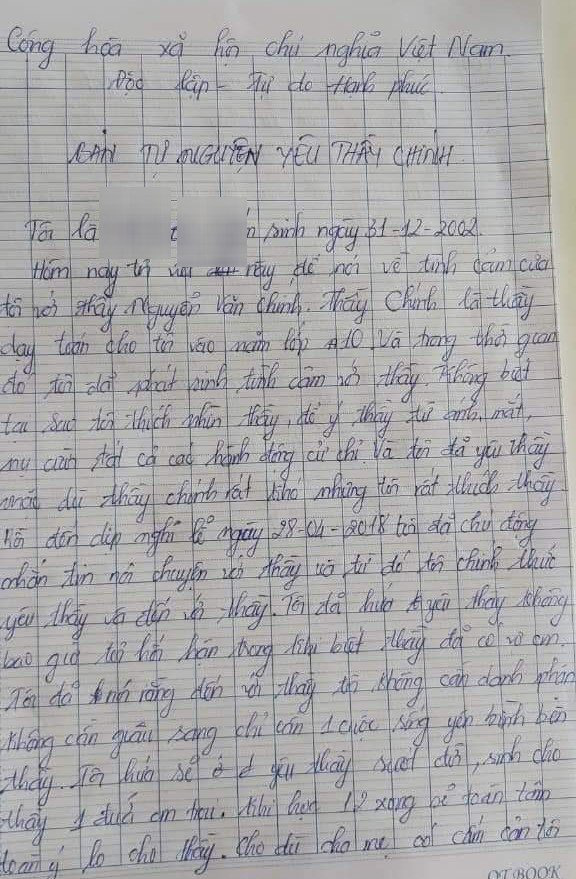 Cộng hòa xã hội chủ nghĩa Việt Nam.
Độc lập - Tự do Hạnh phúc.
BẢN TỰ NGUYỆN YÊU THẦY CHINH.
Tôi là sinh ngày 31-12-2002.
Hôm nay tôi này để nói về tình cảm của
tôi với thầy Nguyễn Văn Chinh. Thầy Chinh là thầy
dạy toán cho tôi vào năm lớp 10. Và trong thời gian
đó tôi đã phát sinh tình cảm với thầy. Không biết
tại sao tôi thích nhìn thầy, để ý thầy từ ánh mắt,
nụ cười tất cả các hành động cử chỉ. Và tôi đã yêu thầy
mặc dù thầy chinh rất khó nhưng tôi rất thích thầy.
đến dịp nghỉ lễ ngày 28-04-2018 tôi đã chủ động
nhắn tin nói chuyện với thầy và từ đó tôi chính thức
yêu thầy và đến với thầy. Tôi đã hứa yêu thầy không
bao giờ tôi hối hận trong khi biết thầy đã có vợ con.
Tôi đã nói rằng đến với thầy tôi không cần danh phận
không cần giàu sang chỉ cần 1 cuộc sống yên bình bên
thầy. Tôi hứa sẽ yêu thầy suốt đời, sinh cho
thầy 1 đứa con trai. Khi học 12 xong sẽ toàn tâm
toàn ý lo cho thầy. Cho dù cha mẹ có cấm cản tôi
OT.BOOK